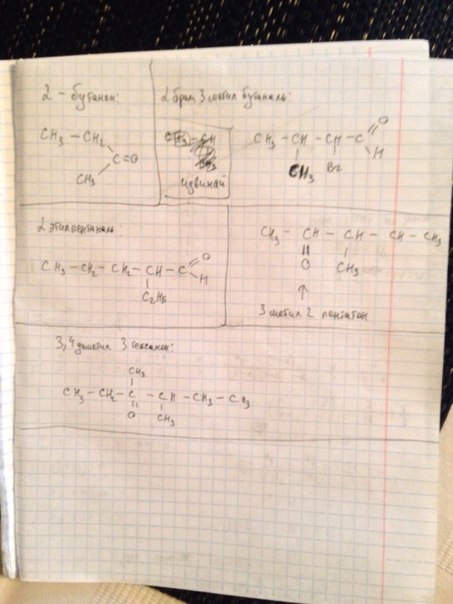 2 - бутанон:
CH₃ - CH₂
C=O
CH₃
2 бром 3 метил бутаналь:
извиняй
CH₃ - CH - CH - C
O
H
CH₃ Br
2 этилпентаналь
CH₃ - CH₂ - CH₂ - CH - C
O
H
C₂H₅
CH₃ - CH - CH - CH - CH₃
O CH₃
↑
3 метил 2 пентатон
3,4 диметил 3 гексанон:
CH₃
CH₃ - CH₂ - C - CH - CH₃ - CH₃
O CH₃